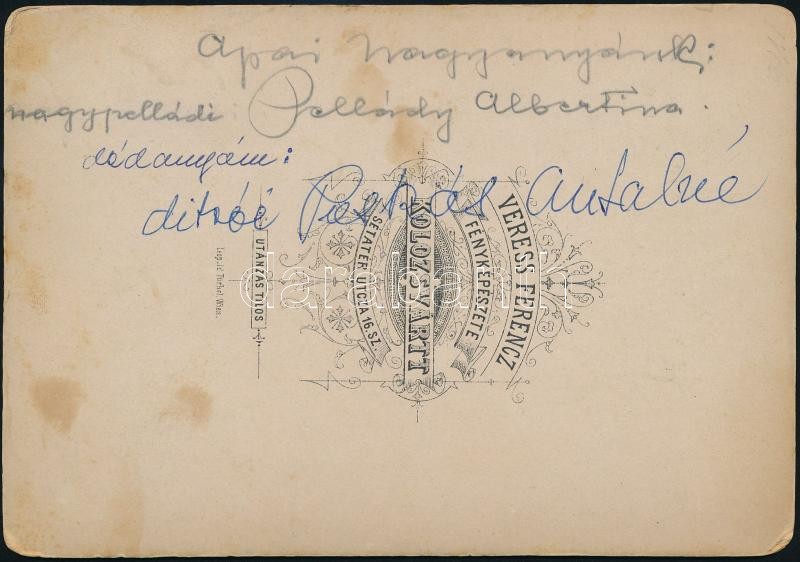 Apai Nagyanyánk:
nagypelládi Pellády Albertina.
dédanyám:
ditrói Puskás Antalné
VERESS FERENCZ
FÉNYKÉPÉSZETE
KOLOZSVÁRTT
SÉTATÉR UTCZA 16. SZ.
UTÁNZÁS TILOS
Leopold Türkel Wien.
darabanth